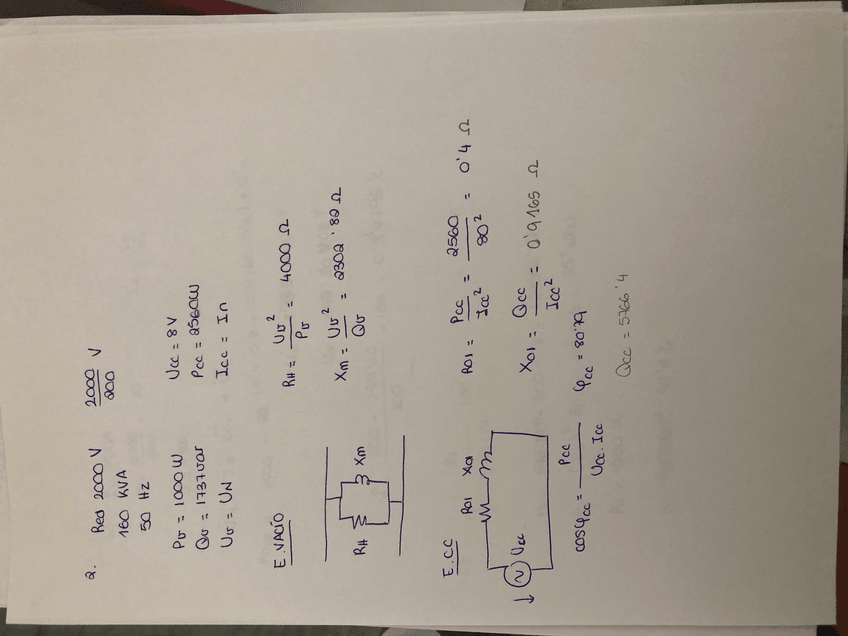 2. Red 2000 V 2000/200 V
160 KVA
50 Hz
Pv = 1000 W Ucc = 8 V
Qv = 1737 var Pcc = 2560 W
Uv = UN Icc = In
E. VACÍO
RH = Uv²/Pv = 4000 Ω
Xm = Uv²/Qv = 2302'82 Ω
RH Xm
E.CC
R01 X01
Ucc
R01 = Pcc/Icc² = 2560/80² = 0'4 Ω
X01 = Qcc/Icc² = 0'9165 Ω
cosφcc = Pcc/Ucc·Icc φcc = 80'79
Qcc = 5766'4